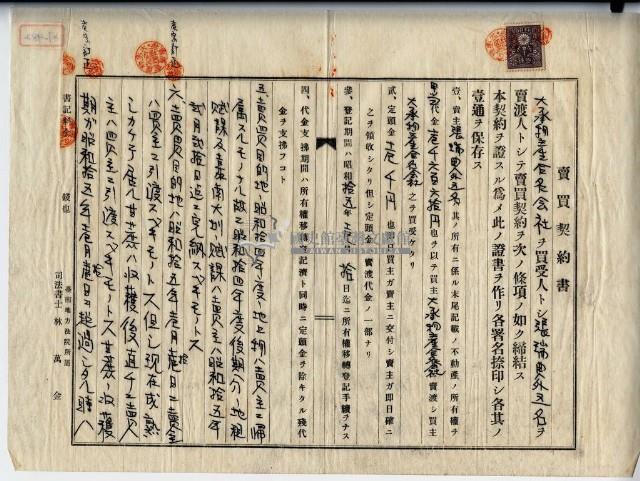 賣買契約書
大承物產合名會社ヲ買受人トシ張瑞典外五名ヲ
賣渡人トシテ賣買契約ヲ次ノ條項ノ如ク締結ス
本契約ヲ證スル爲メ此ノ證書ヲ作リ各署名捺印シ各其ノ
壹通ヲ保存ス
壹、賣主張瑞典外五名其ノ所有ニ係ル末尾記載ノ不動產ノ所有權ヲ
代金壹千六百六拾円也ヲ以テ買主大承物產合名會社ニ賣渡シ買主
大承物產合名會社ハ之ヲ買受ケリ
貳、定頭金壹千円也ヲ買主ガ賣主ニ交付シ賣主ガ即日確ニ
之ヲ領收シタリ但シ定頭金ハ賣渡代金ノ一部ナリ
參、登記期間ハ昭和拾五年壹月拾日迄ニ所有權移轉登記手續ヲナス
四、代金支拂期間ハ所有權移轉登記濟ト同時ニ定頭金ヲ除キタル殘代
金ヲ支拂フコト
五、賣買目的地ノ昭和拾四年度ノ地上物ハ賣主ニ歸
屬スルモノナル故ニ昭和拾四年度後期分ノ地租
賦課及嘉南大圳賦課ハ賣主ハ昭和拾五年
貳月貳拾日迄ニ完納スベキモノトス
六、賣買目的地ハ昭和拾五年壹月拾日ニ賣主
ハ買主ニ引渡スベキモノトス但シ現在成熟
シカケテ居ル甘蔗ハ收穫後直チニ賣主
ハ買主ニ引渡スベキモノトス甘蔗ノ收穫
期ガ昭和拾五年壹月拾日ヲ超過シタル時ハ
書記料金 錢也
臺南地方法院所屬
司法書士 林萬金